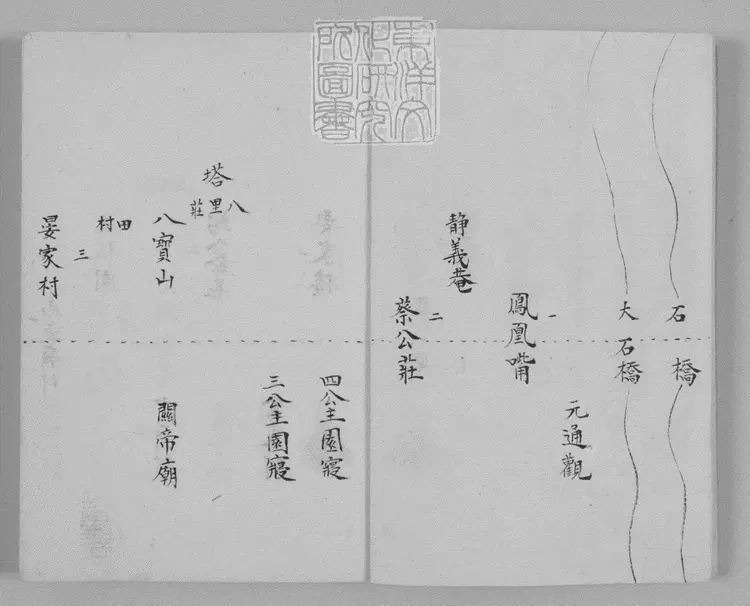 東洋文
化研究
所圖書
石橋
大石橋
元通觀
一
鳳凰嘴
静義菴
二
蔡公莊
四公主園寢
三公主園寢
塔
八里莊
八寶山
關帝廟
田村
三
晏家村